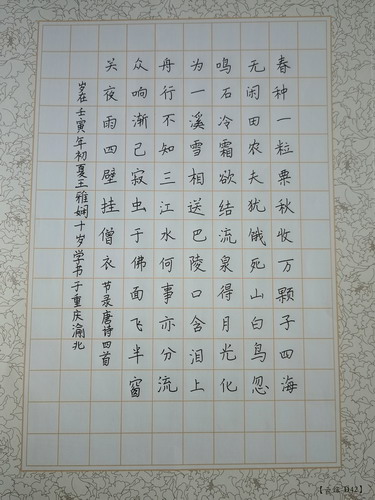 春种一粒粟秋收万颗子四海
无闲田农夫犹饿死山白鸟忽
鸣石冷霜欲结流泉得月光化
为一溪雪相送巴陵口含泪上
舟行不知三江水何事亦分流
众响渐已寂虫于佛面飞半窗
关夜雨四壁挂僧衣 节录唐诗四首
岁在壬寅年初夏王雅娴十岁学书于重庆渝北